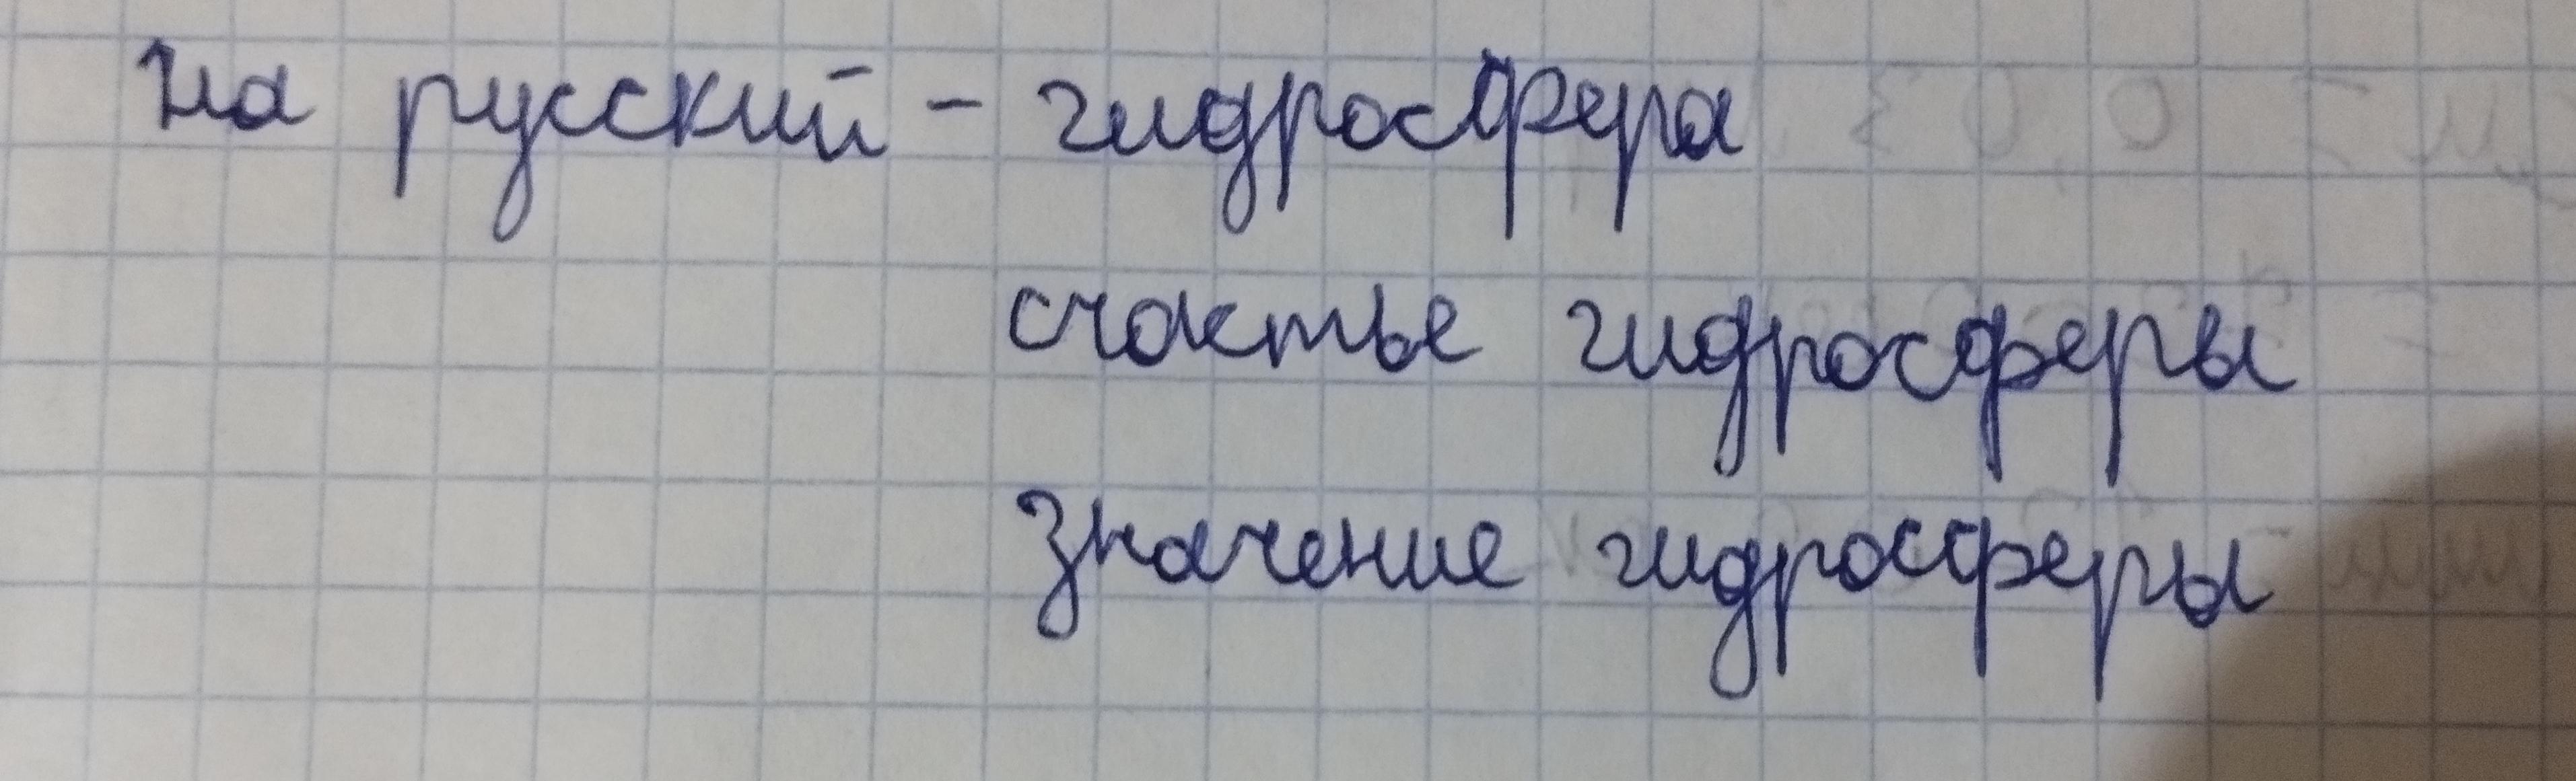 на русский - гидросфера
счастье гидросферы
значение гидросферы